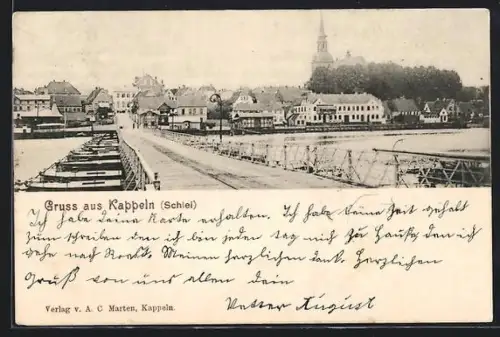 Gruss aus Kappeln (Schlei)
Ich habe deine Karte erhalten. Ich habe keine Zeit gehabt
zum schreiben den ich bin jeden tag mich zu Hause den ich
gehe nach Meinen herzlichen dank. Herzlichen
Gruß von uns allen dein
Vetter August
Verlag v. A. C Marten, Kappeln.